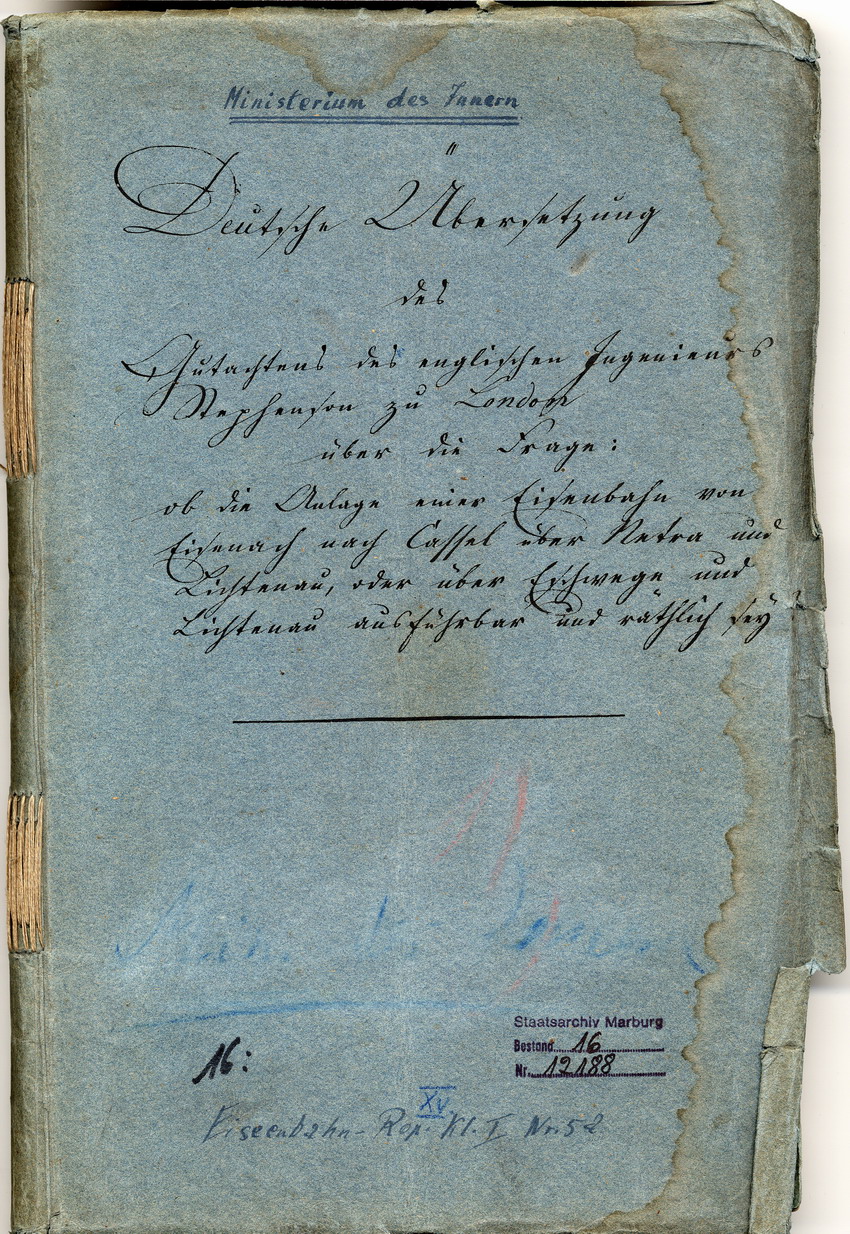 Ministerium des Innern
Deutsche Übersetzung
des
Gutachtens des englischen Ingenieurs
Stephenson zu London
über die Frage:
ob die Anlage einer Eisenbahn von
Eisenach nach Cassel über Netra und
Lichtenau, oder über Eschwege und
Lichtenau ausführbar und räthlich sey
Min. des Innern
Staatsarchiv Marburg
Bestand 16
Nr. 12188
16:
XV
Eisenbahn-Rep. Kl. I Nr. 52